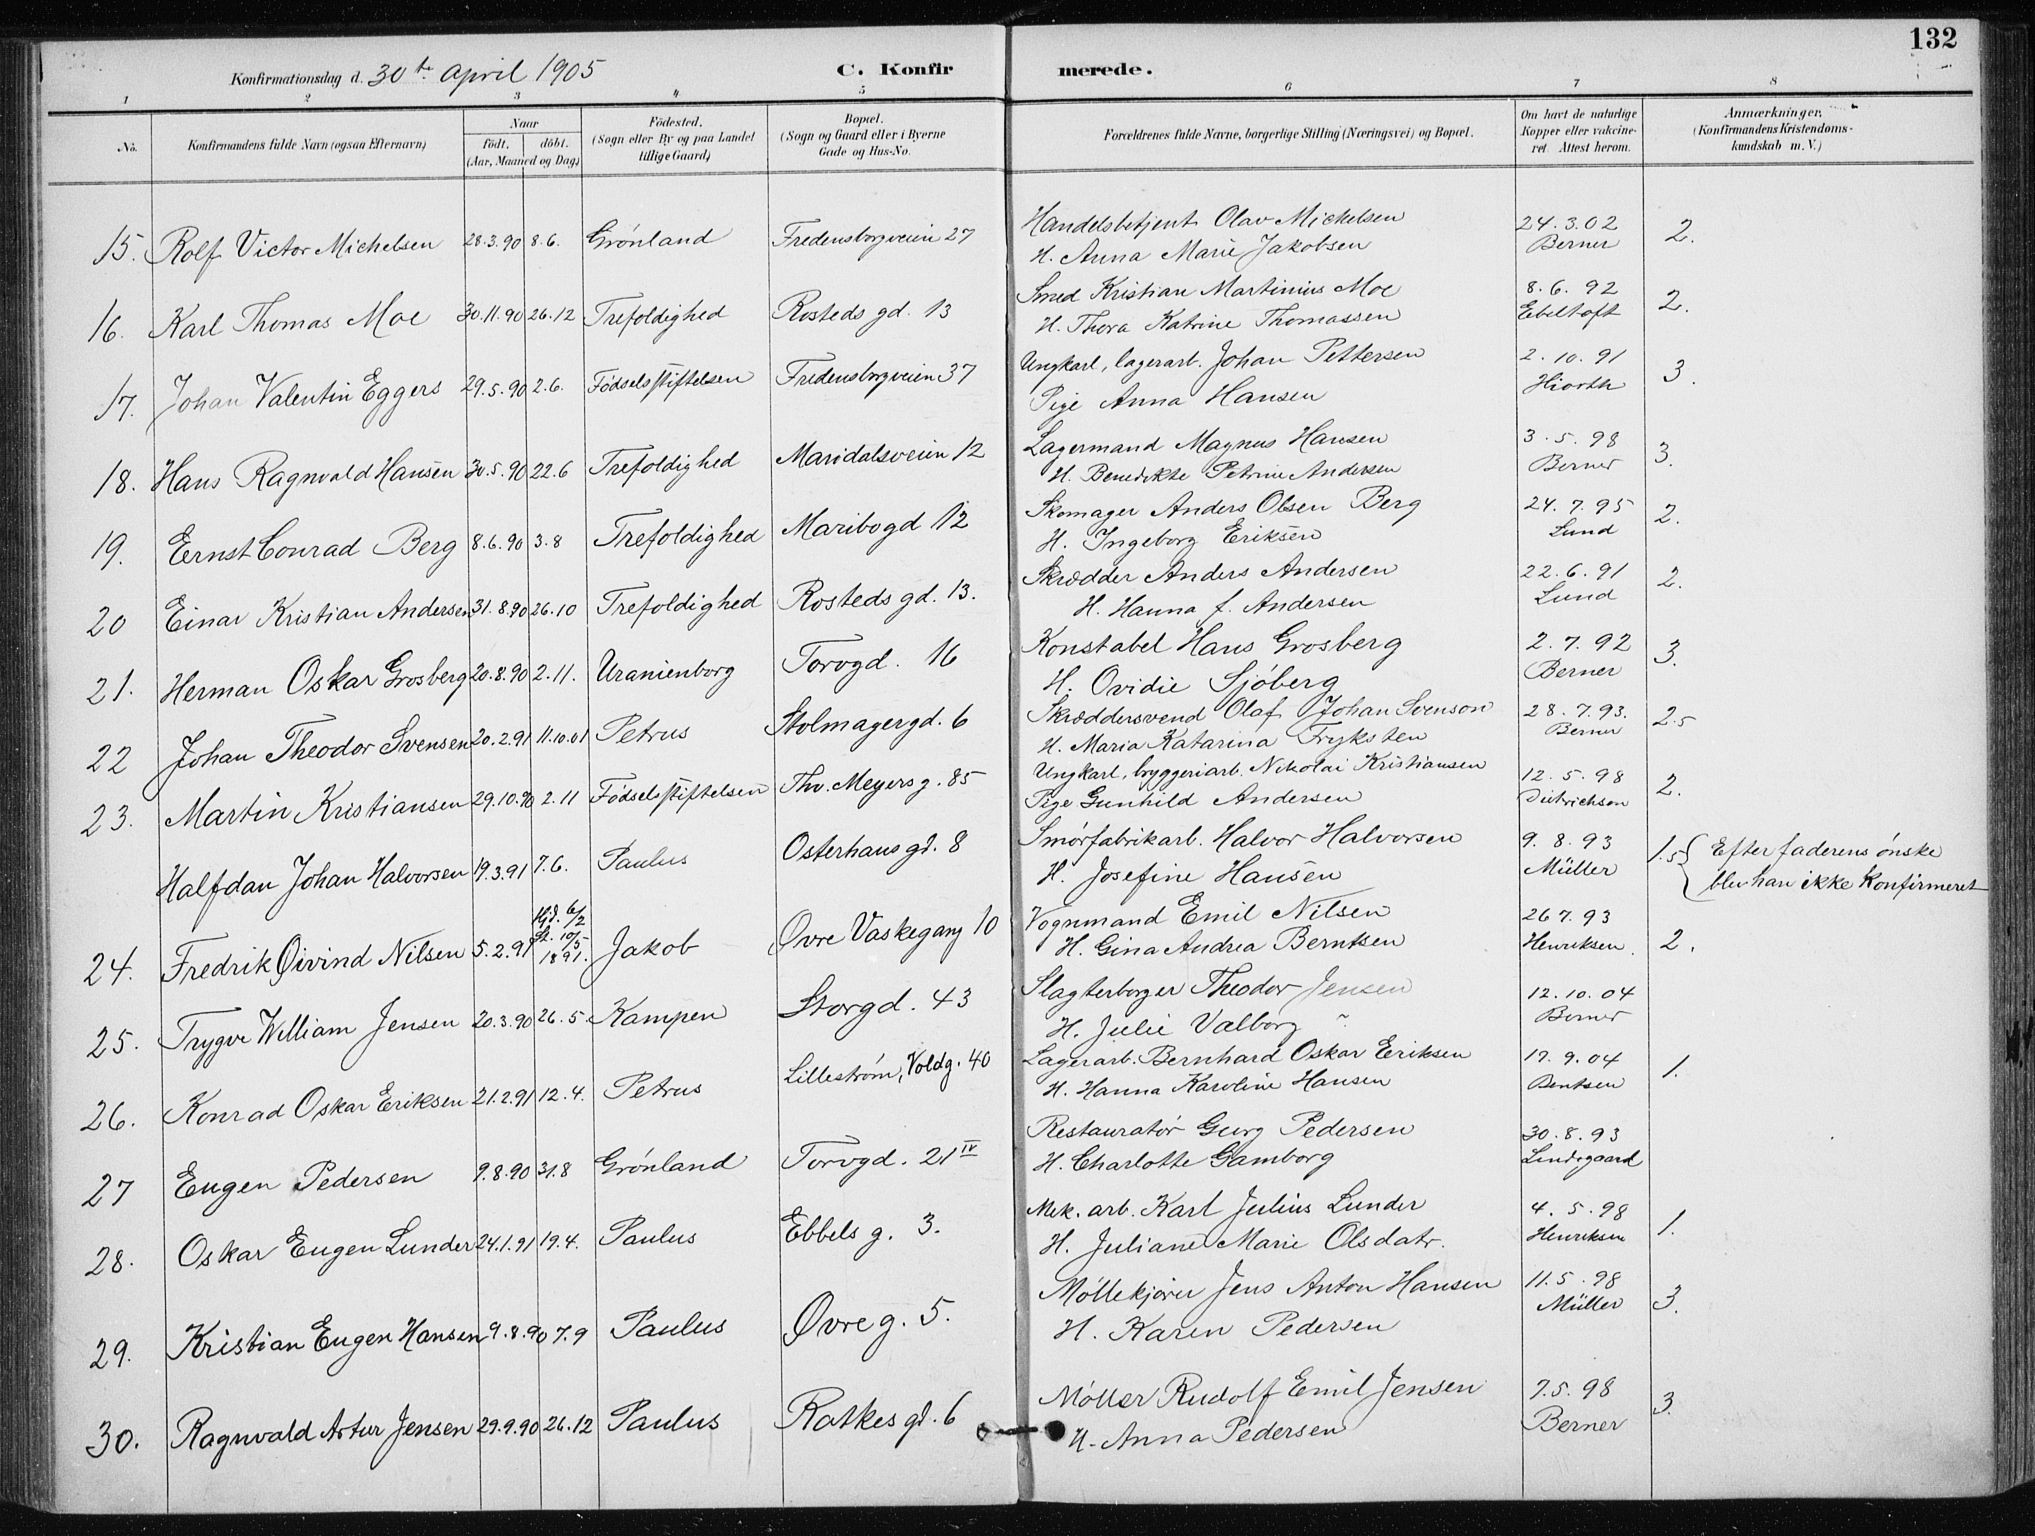 132
Konfirmationsdag d. 30te April 1905 C. Konfirmerede.
1 2 3 4 5 6 7 8
No. Konfirmandens fulde Navn (ogsaa Efternavn) Naar født. døbt. (Aar, Maaned og Dag) Födested. (Sogn eller By og paa Landet tillige Gaard) Bopæl. (Sogn og Gaard eller i Byerne Gade og Hus-No. Forældrenes fulde Navne, borgerlige Stilling (Næringsvei) og Bopæl. Om havt de naturlige Kopper eller vakcineret. Attest herom. Anmærkninger. (Konfirmandens Kristendomskundskab m. V.)
15. Rolf Victor Michelsen 28.3.90 8.6. Grønland Fredensborgveien 27 Handelsbetjent Olav Mickelsen 24.3.02 2.
H. Anna Marie Jakobsen Berner
16. Karl Thomas Moe 30.11.90 26.12 Trefoldighed Rosteds gd. 13 Smed Kristian Martinius Moe 8.6.92 2.
H. Thora Katrine Thomassen Ebeltoft
17. Johan Valentin Eggers 29.5.90 2.6. Födselsstiftelsen Fredensborgveien 37 Ungkarl, lagerarb. Johan Pettersen 2.10.91 3.
Pige Anna Hansen Hiorth
18. Hans Ragnvald Hansen 30.5.90 22.6 Trefoldighed Maridalsveien 12 Lagermand Magnus Hansen 3.5.98 3.
H. Benedikte Petrine Andersen Berner
19. Ernst Conrad Berg 8.6.90 3.8 Trefoldighed Maribogd 12 Skomager Anders Olsen Berg 24.7.95 2.
H. Ingeborg Eriksen Lund
20 Einar Kristian Andersen 31.8.90 26.10 Trefoldighed Rosteds gd. 13. Skrædder Anders Andersen 22.6.91 2.
H. Hanna f. Andersen Lund
21. Herman Oskar Grosberg 20.8.90 2.11. Uranienborg Torvgd. 16 Konstabel Hans Grosberg 2.7.92 3.
H. Ovidie Sjöberg Berner
22 Johan Theodor Svensen 20.2.91 11.10.01 Petrus Stolmagergd. 6 Skræddersvend Olaf Johan Svenson 28.7.93. 2.5
H. Maria Katarina Fryksten Berner
23. Martin Kristiansen 29.10.90 2.11 Födselsstiftelsen Thv. Meyers g. 85 Ungkarl, bryggeriarb. Nikolai Kristiansen 12.5.98 2.
Pige Gunhild Andersen Dietrichson
Halfdan Johan Halvorsen 19.3.91 7.6. Paulus Osterhaus gd. 8 Smörfabrikarb. Halvor Halvorsen 9.8.93 1.5 { Efter faderens ønske
H. Josefine Hansen Müller blev han ikke konfirmeret
24. Fredrik Øivind Nilsen 5.2.91 Hjd. 6/2 St. 10/5 1891. Jakob Øvre Vaskegang 10 Vognmand Emil Nilsen 26 7.93 2.
H. Gina Andrea Berntsen Henriksen.
25. Trygve William Jensen 20.3.90 26.5. Kampen Storgd. 43 Slagterborger Theodor Jensen 12.10.04
H. Julie Valborg " Berner
26. Konrad Oskar Eriksen 21.2.91 12.4. Petrus Lillestrøm, Voldg. 40 Lagerarb. Bernhard Oskar Eriksen 17.9.04 1.
H. Hanna Karoline Hansen Bentsen
27 Eugen Pedersen 9.8.90 31.8 Grønland Torvgd. 21 IV Restauratør Georg Pedersen 30.8.93
H. Charlotte Gamborg Lindsgaard
28. Oskar Eugen Lunder 24.1.91 19.4. Paulus Ebbels g. 3. Mek. arb. Karl Julius Lunder 4.5.98 1.
H. Juliane Marie Olsdatr. Henriksen
29. Kristian Eugen Hansen 9.8.90 7.9 Paulus Øvre g. 5. Møllekjører Jens Anton Hansen 11.5.98 3.
H. Karen Pedersen Müller
30. Ragnvald Artur Jensen 29.9.90 26.12 Paulus Ratkes gd. 6 Møller Rudolf Emil Jensen 7.5.98 3.
H. Anna Pedersen Berner